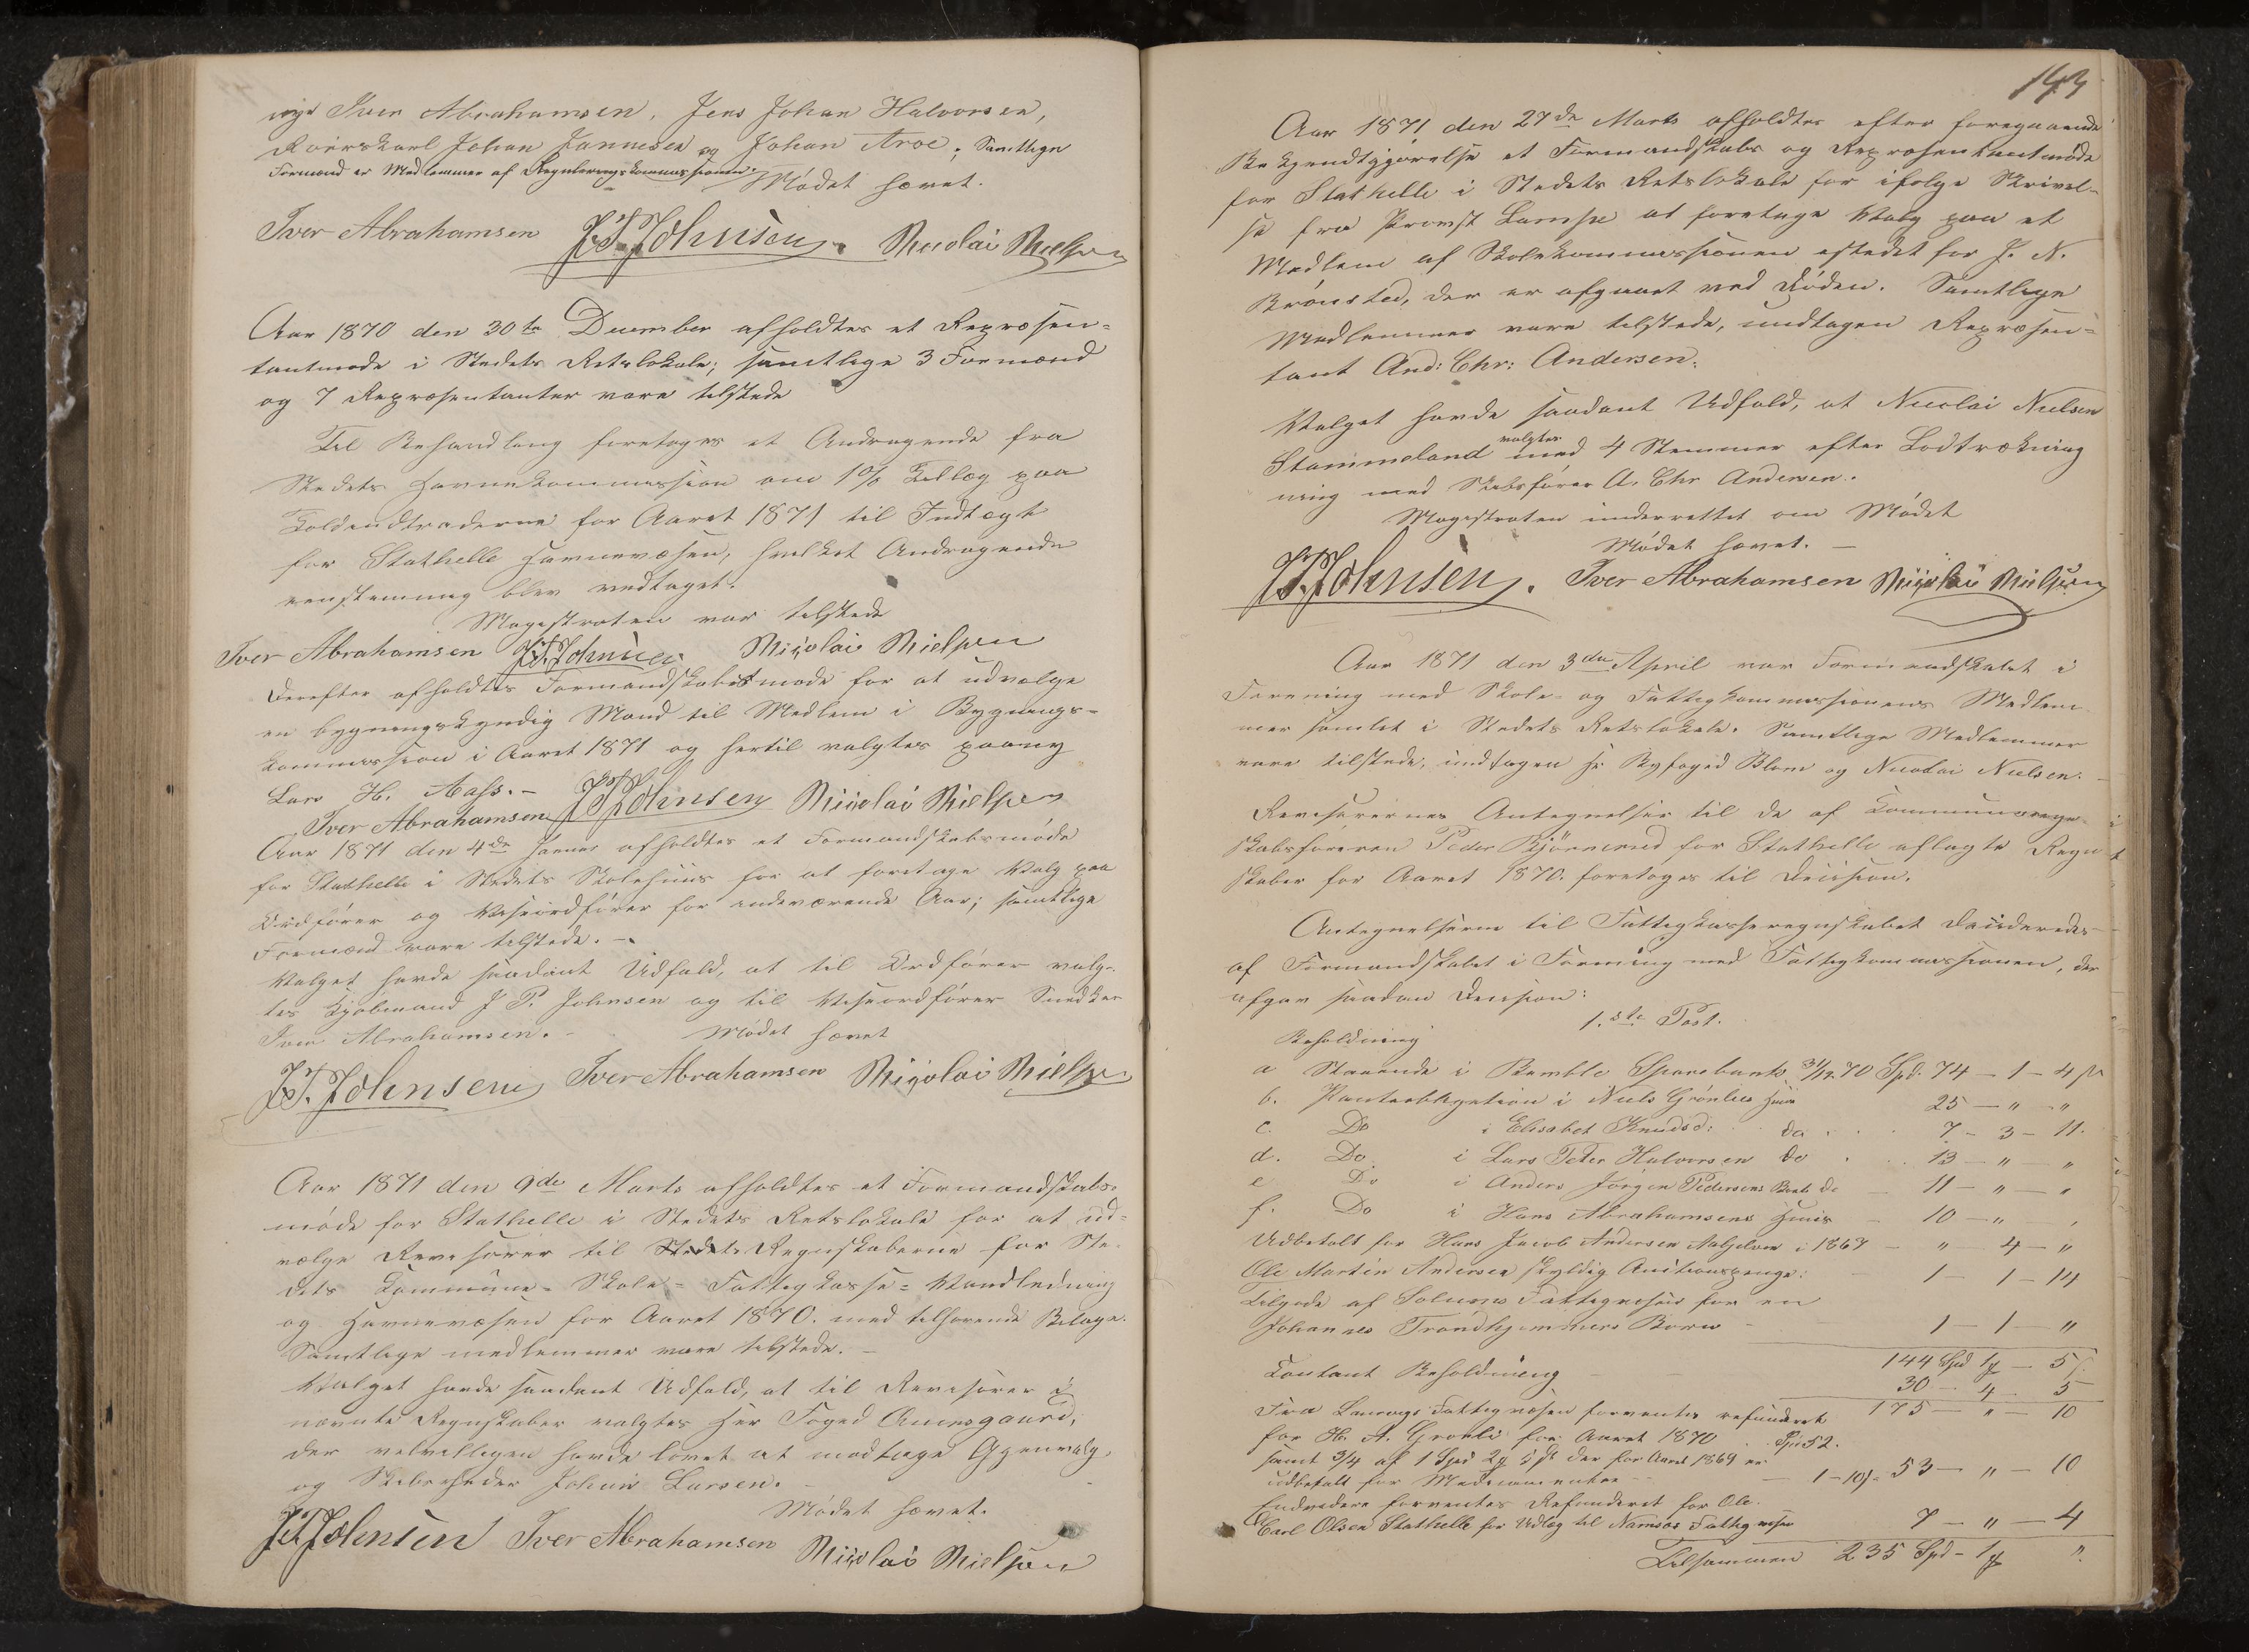 nye Iver Abrahamsen, Jens Johan Halvorsen,
Johan Jannesen og Johan Aroe; Samtlige
Formænd er Medlemmer af Reguleringskommissionen.
Mødet hævet.
Iver Abrahamsen J.P. Johnsen. Nicolai Nielsen
Aar 1870 den 30te December afholdtes et Repræsen-
tantmøde i Stedets Retslokale; samtlige 3 Formænd
og 7 Repræsentanter vare tilstede
Til Behandling foretoges et Andragende fra
Stedets Havnekommission om 10% Tillæg paa
Toldindtraderne for Aaret 1871 til Indtægt
for Stathelle Havnevæsen, hvilket Andragende
eenstemmig blev vedtaget.
Magistraten var tilstede
Iver Abrahamsen J.P. Johnsen Nicolai Nielsen
Derefter afholdtes Formandskabsmøde for at udvælge
en bygningskyndig Mand til Medlem i Bygnings-
kommission i Aaret 1871 og hertil valgtes paany
Lars H. Aass. -
Iver Abrahamsen J.P. Johnsen Nicolai Nielsen
Aar 1871 den 4de Januar afholdtes et Formandskabsmøde
for Stathelle i Stedets Skolehuus for at foretage Valg paa
Ordfører og Viseordfører for indeværende Aar; samtlige
Formænd vare tilstede. -
Valget havde saadant Udfald, at til Ordfører valg-
tes Kjøbmand J P. Johnsen og til Viseordfører Snedker
Iver Abrahamsen. - Mødet hævet
J.P. Johnsen Iver Abrahamsen Nicolai Nielsen
Aar 1871 den 9de Marts afholdtes et Formandskabs-
møde for Stathelle i Stedets Retslokale for at ud-
vælge Revisorer til Regnskaberne for Ste-
dets Kommune- Skole- Fattigkasse- Vandledning
og Havnevæsen for Aaret 1870. med tilhørende Bilage.
Samtlige medlemmer vare tilstede. -
Valget havde saadant Udfald, at til Revisorer i
nævnte Regnskaber valgtes Hr Foged Amesgaard,
der velvilligen havde lovet at modtage Gjenvalg,
og Skibsreder Johan Larsen. -
Mødet hævet.
J.P. Johnsen Iver Abrahamsen Nicolai Nielsen
143
Aar 1871 den 27de Marts afholdtes efter foregaaende
Bekjendtgjørelse et Formandskabs og Repræsentantmøde
for Stathelle i Stedets Retslokale for ifølge Skrivel-
se fra Provst Lampe at foretage Valg paa et
Medlem af Skolekommissionen istedet for J. N.
Brønsted, der er afgaaet ved Døden. Samtlige
Medlemmer vare tilstede, undtagen Repræsen-
tant And: Chr: Andersen.
Valget havde saadant Udfald, at Nicolai Nielsen
Stammeland valgtes med 4 Stemmer efter Lodtrækning
ning med Skibsfører A. Chr Andersen.
Magistraten underrettet om Mødet
Mødet hævet. -
J.P. Johnsen. Iver Abrahamsen Nicolai Nielsen
Aar 1871 den 3die April var Formandskabet i
Forening med Skole- og Fattigkommissionens Medlem-
mer samlet i Stedets Retslokale. Samtlige Medlemmer
vare tilstede, undtagen Hr Byfoged Blom og Nicolai Nielsen. -
Revisorernes Antegnelser til de af Kommunereg-
skabsføreren Peder Bjørnerud for Stathelle aflagte Regn
skaber for Aaret 1870. foretoges til Decision.
Antegnelserne til Fattigkasseregnskabet decideredes
af Formandskabet i Forening med Fattigkommissionen, der
afgav saadan Decision:
1.ste Post.
Beholdning
a Staaende i Bamble Sparebank 31/12 70 Spd. 74 - 1 - 4 s
b. Panteobligation i Niels Grønlies Huus 25 - " - "
c. Do i Elisabet Knudsd: do 7 - 3 - 11.
d. Do i Lars Peter Halvorsen do 13 - " - "
e Do i Anders Jørgen Pedersens do 11 - " - "
f. Do i Hans Abrahamsens Huus - 10 - " - "
Udbetalt for Hans Jacob Andersen i 1869 - " - 4 - "
Ole Martin Andersen skyldig Auctionspenge: - 1 - 1 - 14
Tilgode af Solums Fattigvæsen for en
Johannes Trondhjemmers Barn - 1 - 1 - "
144 Spd 1 - 5
Contant Beholdning 30 - 4 - 5
175 - " - 10
Fra Fattigvæsen forventes refunderet
for H. A. Gronli for Aaret 1870 Spd 52.
samt 3/4 af 1 Spd 2 5 s der for Aaret 1869 er
udbetalt for Medicamenter - 1 - 10 s - 53 - " - 10
Endvidere forventes Refunderet for Ole
Carl Olsen Stathelle for Udlæg til Namsos Fattigvæsen 7 - " - 4
Tilsammen 235 Spd - 1 "